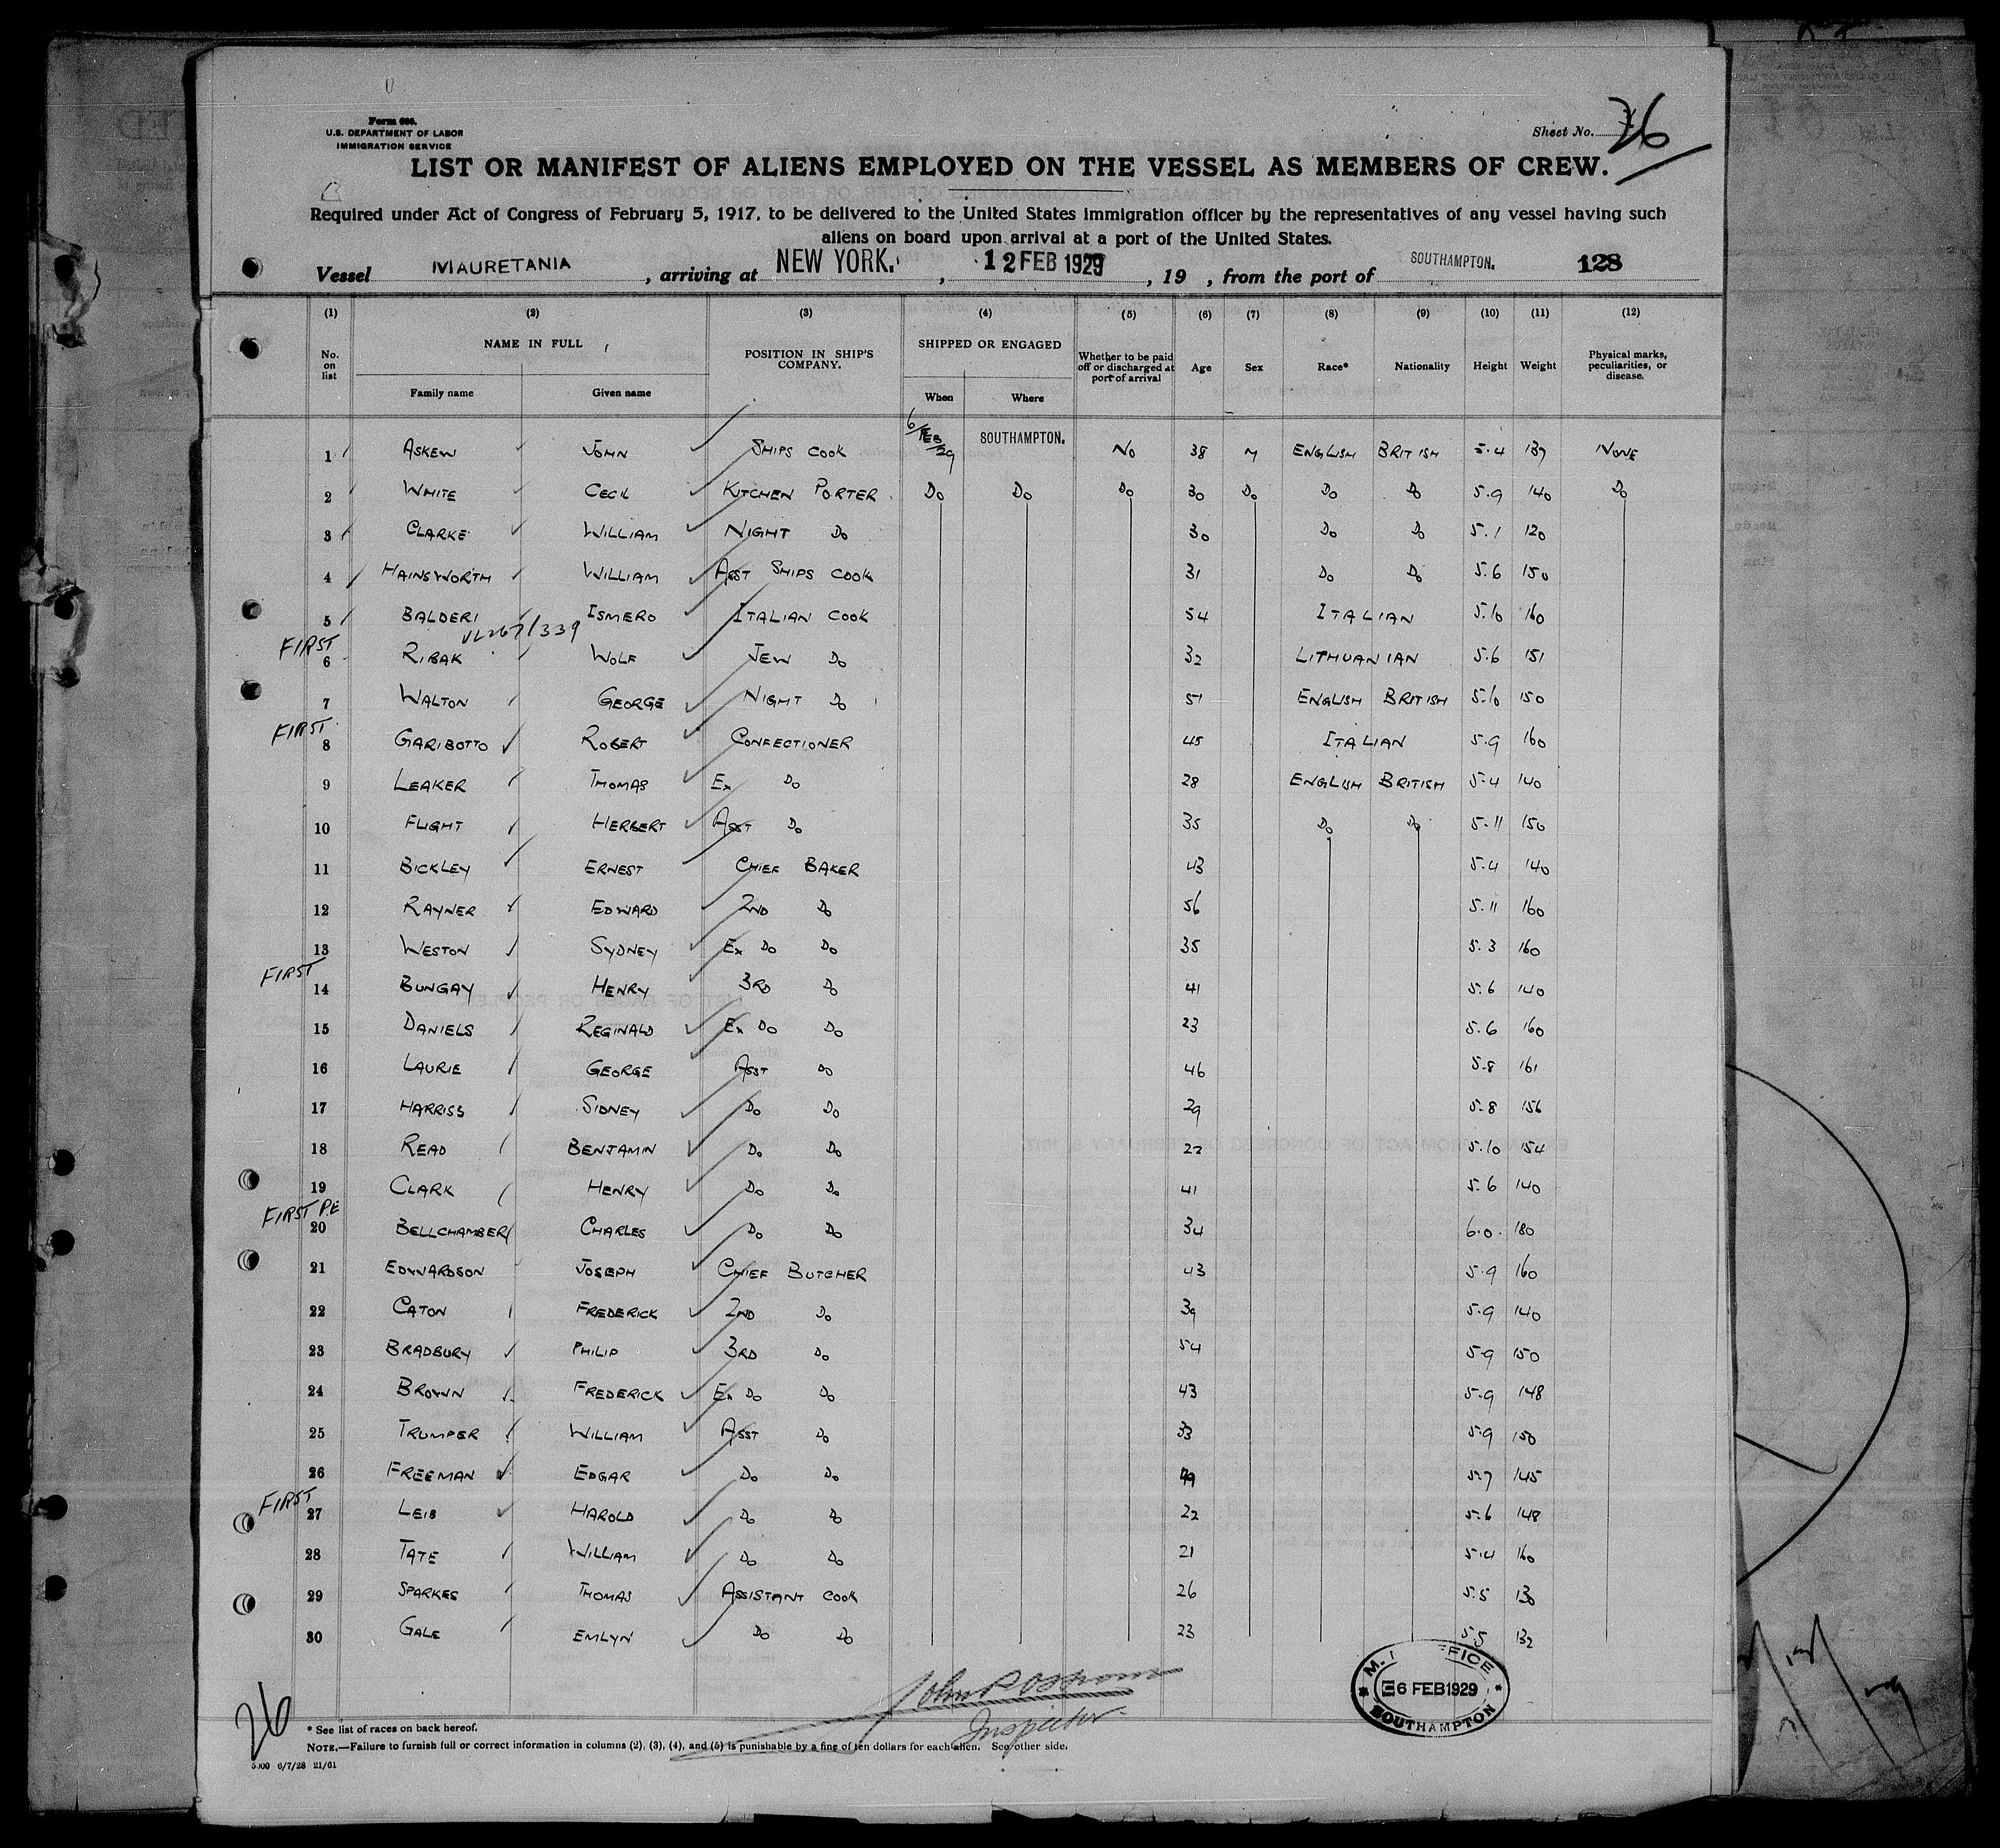 Form 686.
U.S. DEPARTMENT OF LABOR
IMMIGRATION SERVICE
Sheet No. 26
LIST OR MANIFEST OF ALIENS EMPLOYED ON THE VESSEL AS MEMBERS OF CREW.
Required under Act of Congress of February 5, 1917, to be delivered to the United States immigration officer by the representatives of any vessel having such
aliens on board upon arrival at a port of the United States.
Vessel MAURETANIA, arriving at NEW YORK., 12 FEB 1929, 19 , from the port of SOUTHAMPTON. 128
(1) (2) (3) (4) (5) (6) (7) (8) (9) (10) (11) (12)
No. on list NAME IN FULL Family name Given name POSITION IN SHIP'S COMPANY. SHIPPED OR ENGAGED When Where Whether to be paid off or discharged at port of arrival Age Sex Race* Nationality Height Weight Physical marks, peculiarities, or disease.
1 ASKEW JOHN SHIPS COOK 6/FEB/29 SOUTHAMPTON. NO 38 M ENGLISH BRITISH 5.4 139 NONE
2 WHITE CECIL KITCHEN PORTER DO DO DO 30 DO DO DO 5.9 140 DO
3 CLARKE WILLIAM NIGHT DO 30 DO DO 5.1 120
4 HAINSWORTH WILLIAM ASST SHIPS COOK 31 DO DO 5.6 150
5 BALDERI ISMERO ITALIAN COOK 54 ITALIAN 5.10 160
FIRST 6 RIBAK WOLF JEW DO 32 LITHUANIAN 5.6 151
7 WALTON GEORGE NIGHT DO 51 ENGLISH BRITISH 5.10 150
FIRST 8 GARIBOTTO ROBERT CONFECTIONER 45 ITALIAN 5.9 160
9 LEAKER THOMAS EX DO 28 ENGLISH BRITISH 5.4 140
10 FLIGHT HERBERT ASST DO 35 DO DO 5.11 150
11 BICKLEY ERNEST CHIEF BAKER 43 5.4 140
12 RAYNER EDWARD 2ND DO 56 5.11 160
13 WESTON SYDNEY EX DO DO 35 5.3 160
FIRST 14 BUNGAY HENRY 3RD DO 41 5.6 140
15 DANIELS REGINALD EX DO DO 23 5.6 160
16 LAURIE GEORGE ASST DO 46 5.8 161
17 HARRISS SIDNEY DO DO 29 5.8 156
18 READ BENJAMIN DO DO 22 5.10 154
19 CLARK HENRY DO DO 41 5.6 140
FIRST P.E 20 BELLCHAMBER CHARLES DO DO 34 6.0. 180
21 EDWARDSON JOSEPH CHIEF BUTCHER 43 5.9 160
22 CATON FREDERICK 2ND DO 39 5.9 140
23 BRADBURY PHILIP 3RD DO 54 5.9 150
24 BROWN FREDERICK EX DO DO 43 5.9 148
25 TRUMPER WILLIAM ASST DO 33 5.9 150
26 FREEMAN EDGAR DO DO 5.7 145
FIRST 27 LEIB HAROLD DO DO 22 5.6 148
28 TATE WILLIAM DO DO 21 5.4 160
29 SPARKES THOMAS ASSISTANT COOK 26 5.5 130
30 GALE EMLYN DO DO 23 5.5 132
Inspector
FICE
6 FEB 1929
SOUTHAMPTON
26
* See list of races on back hereof.
NOTE.—Failure to furnish full or correct information in columns (2), (3), (4), and (5) is punishable by a fine of ten dollars for each alien. See other side.
5000 6/7/28 21/61